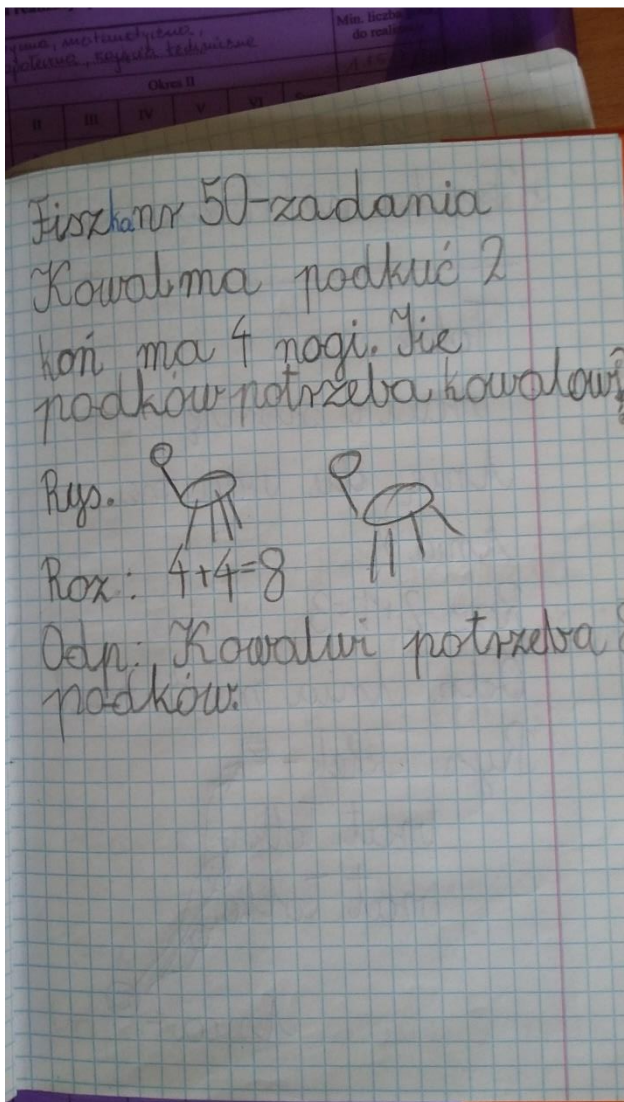 Min. liczba
do realiz
Okres II
II III IV V VI
Fiszka nr 50-zadania
Kowal ma podkuć 2
koń ma 4 nogi. Ile
podków potrzeba kowalowi?
Rys.
Roz: 4+4=8
Odp: Kowalwi potrzeba 8
podków.